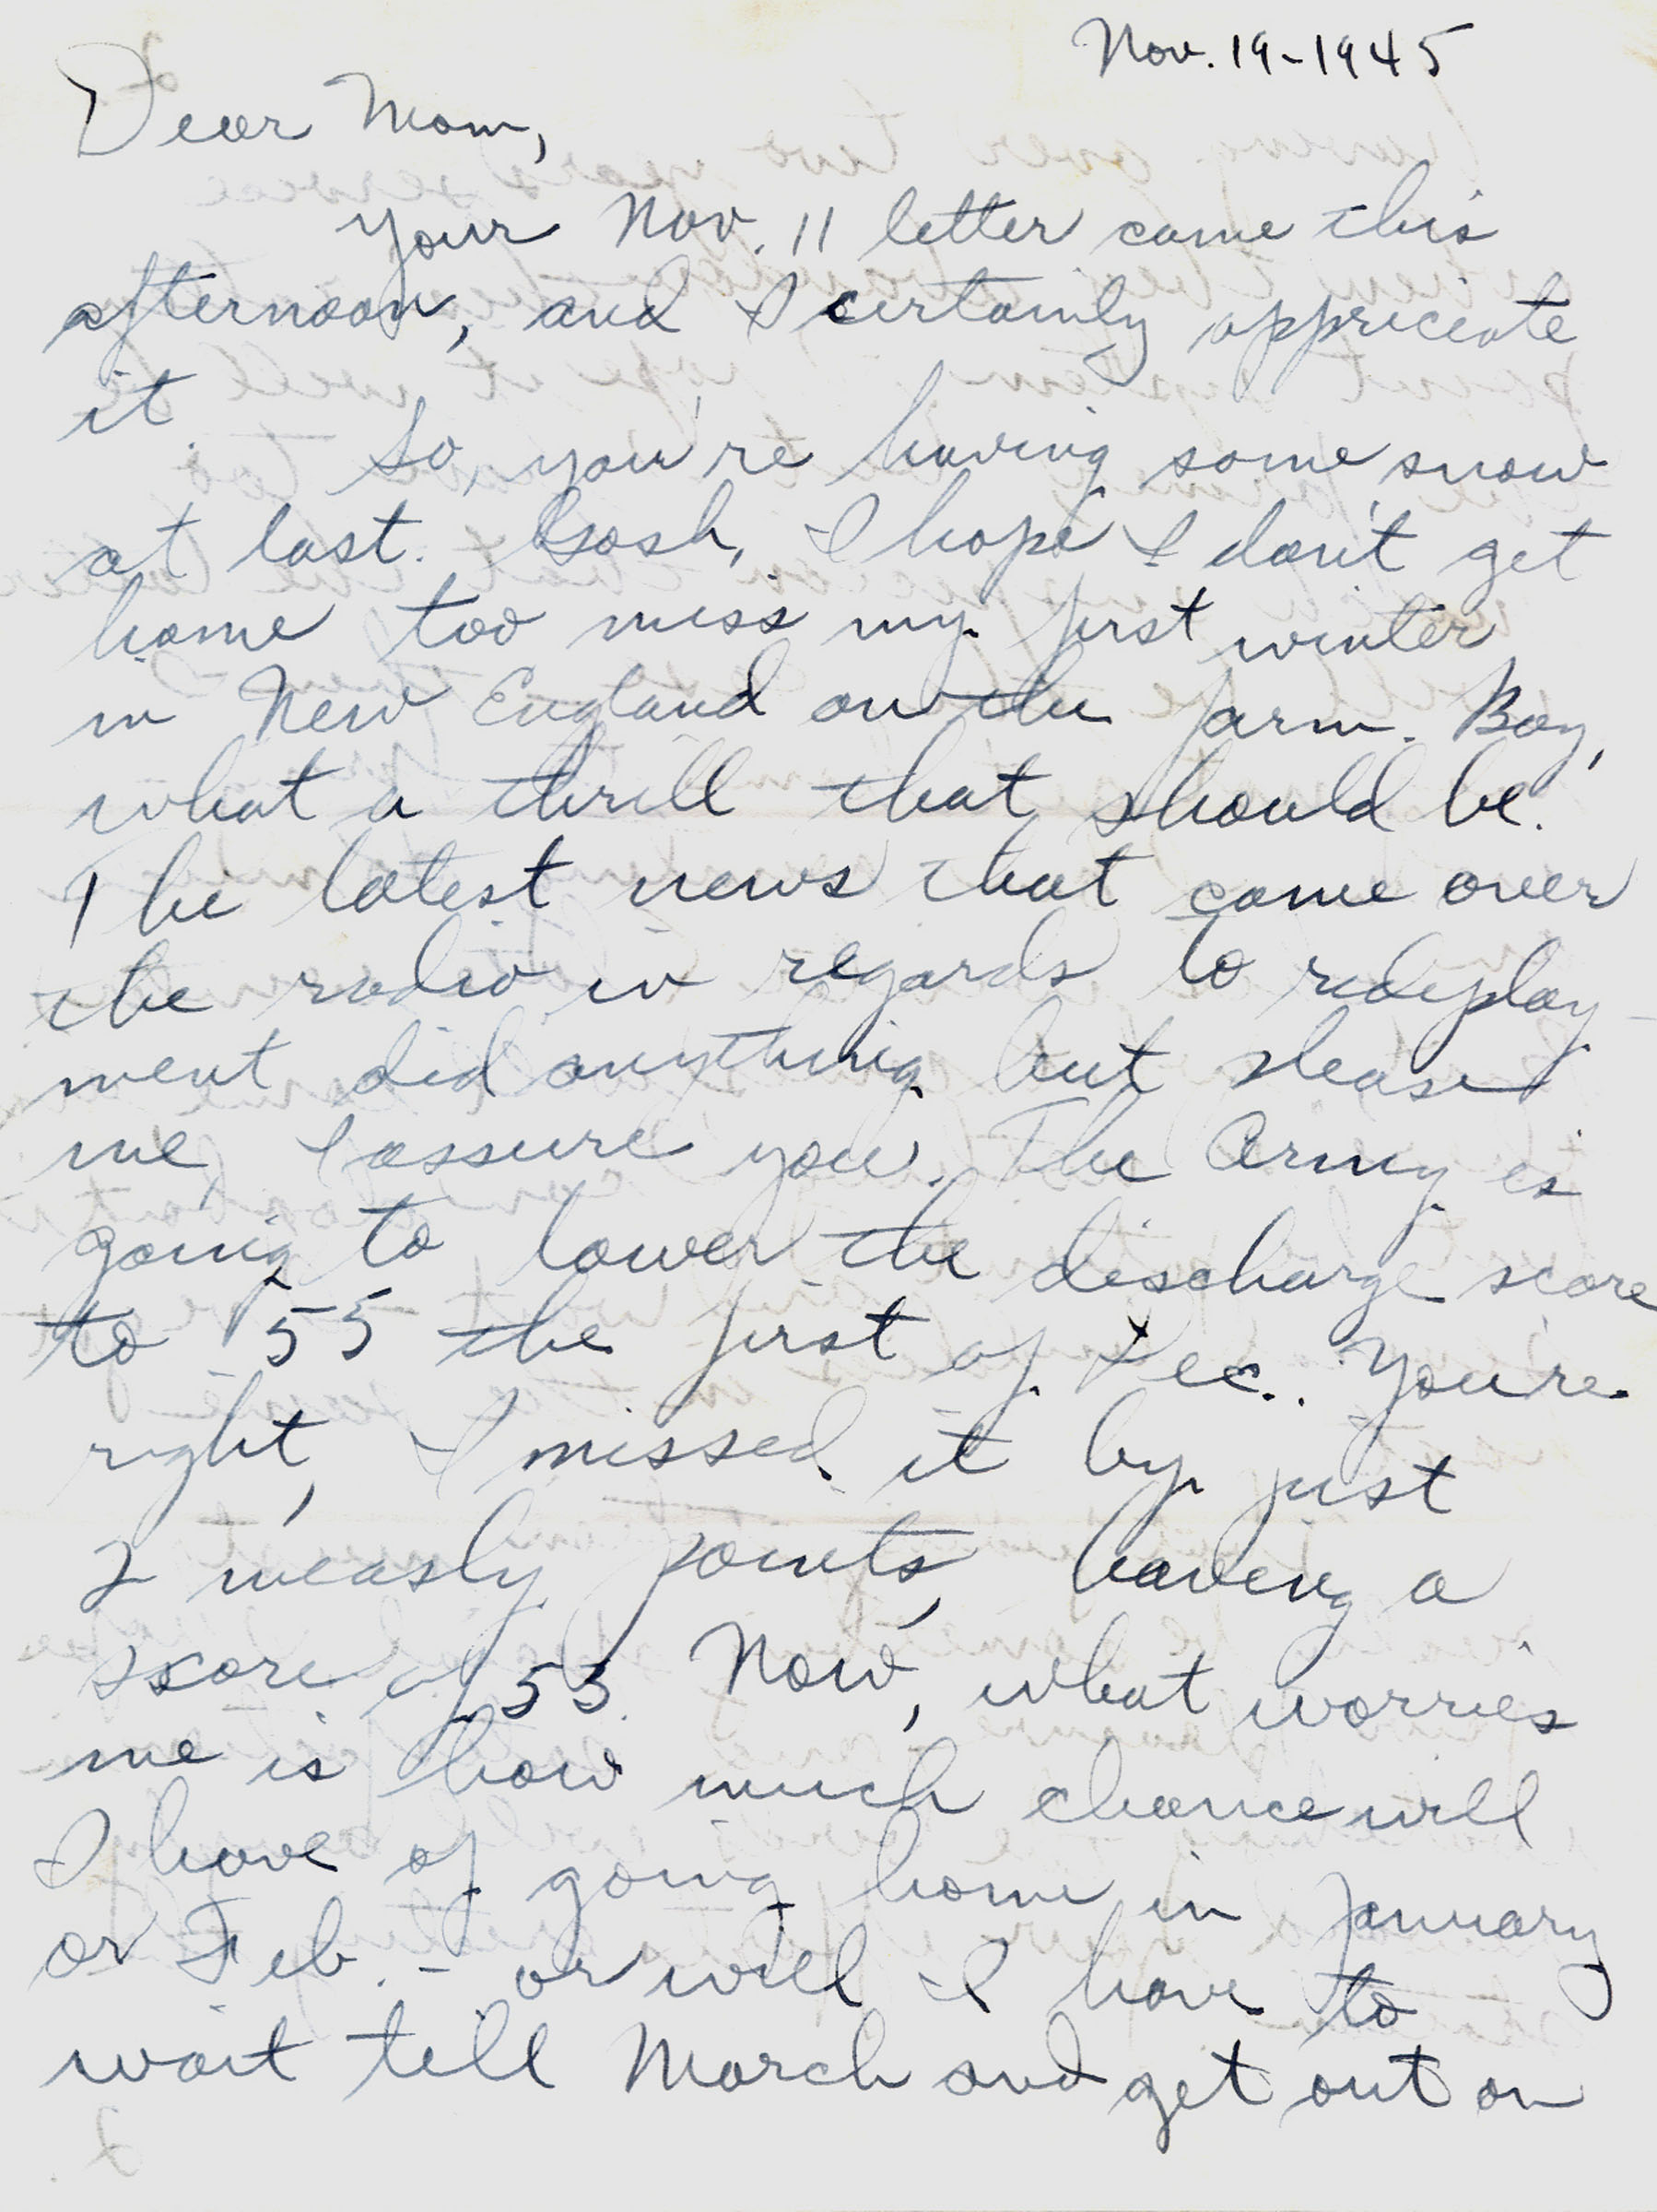 Nov. 19-1945
Dear Mom,
Your Nov. 11 letter came this
afternoon, and I certainly appriciate
it.
So, you're having some snow
at last. Gosh, I hope I don't get
home too miss my first winter
in New England on the farm. Boy,
what a thrill that should be.
The latest news that came over
the radio in regards to redeploy-
ment did anything but please
me, I assure you. The Army is
going to lower the discharge score
to 55 the first of Dec.. You're
right, I missed it by just
2 measly points, having a
score of 53. Now, what worries
me is how much chance will
I have of going home in January
or Feb. - or will I have to
wait till March and get out on